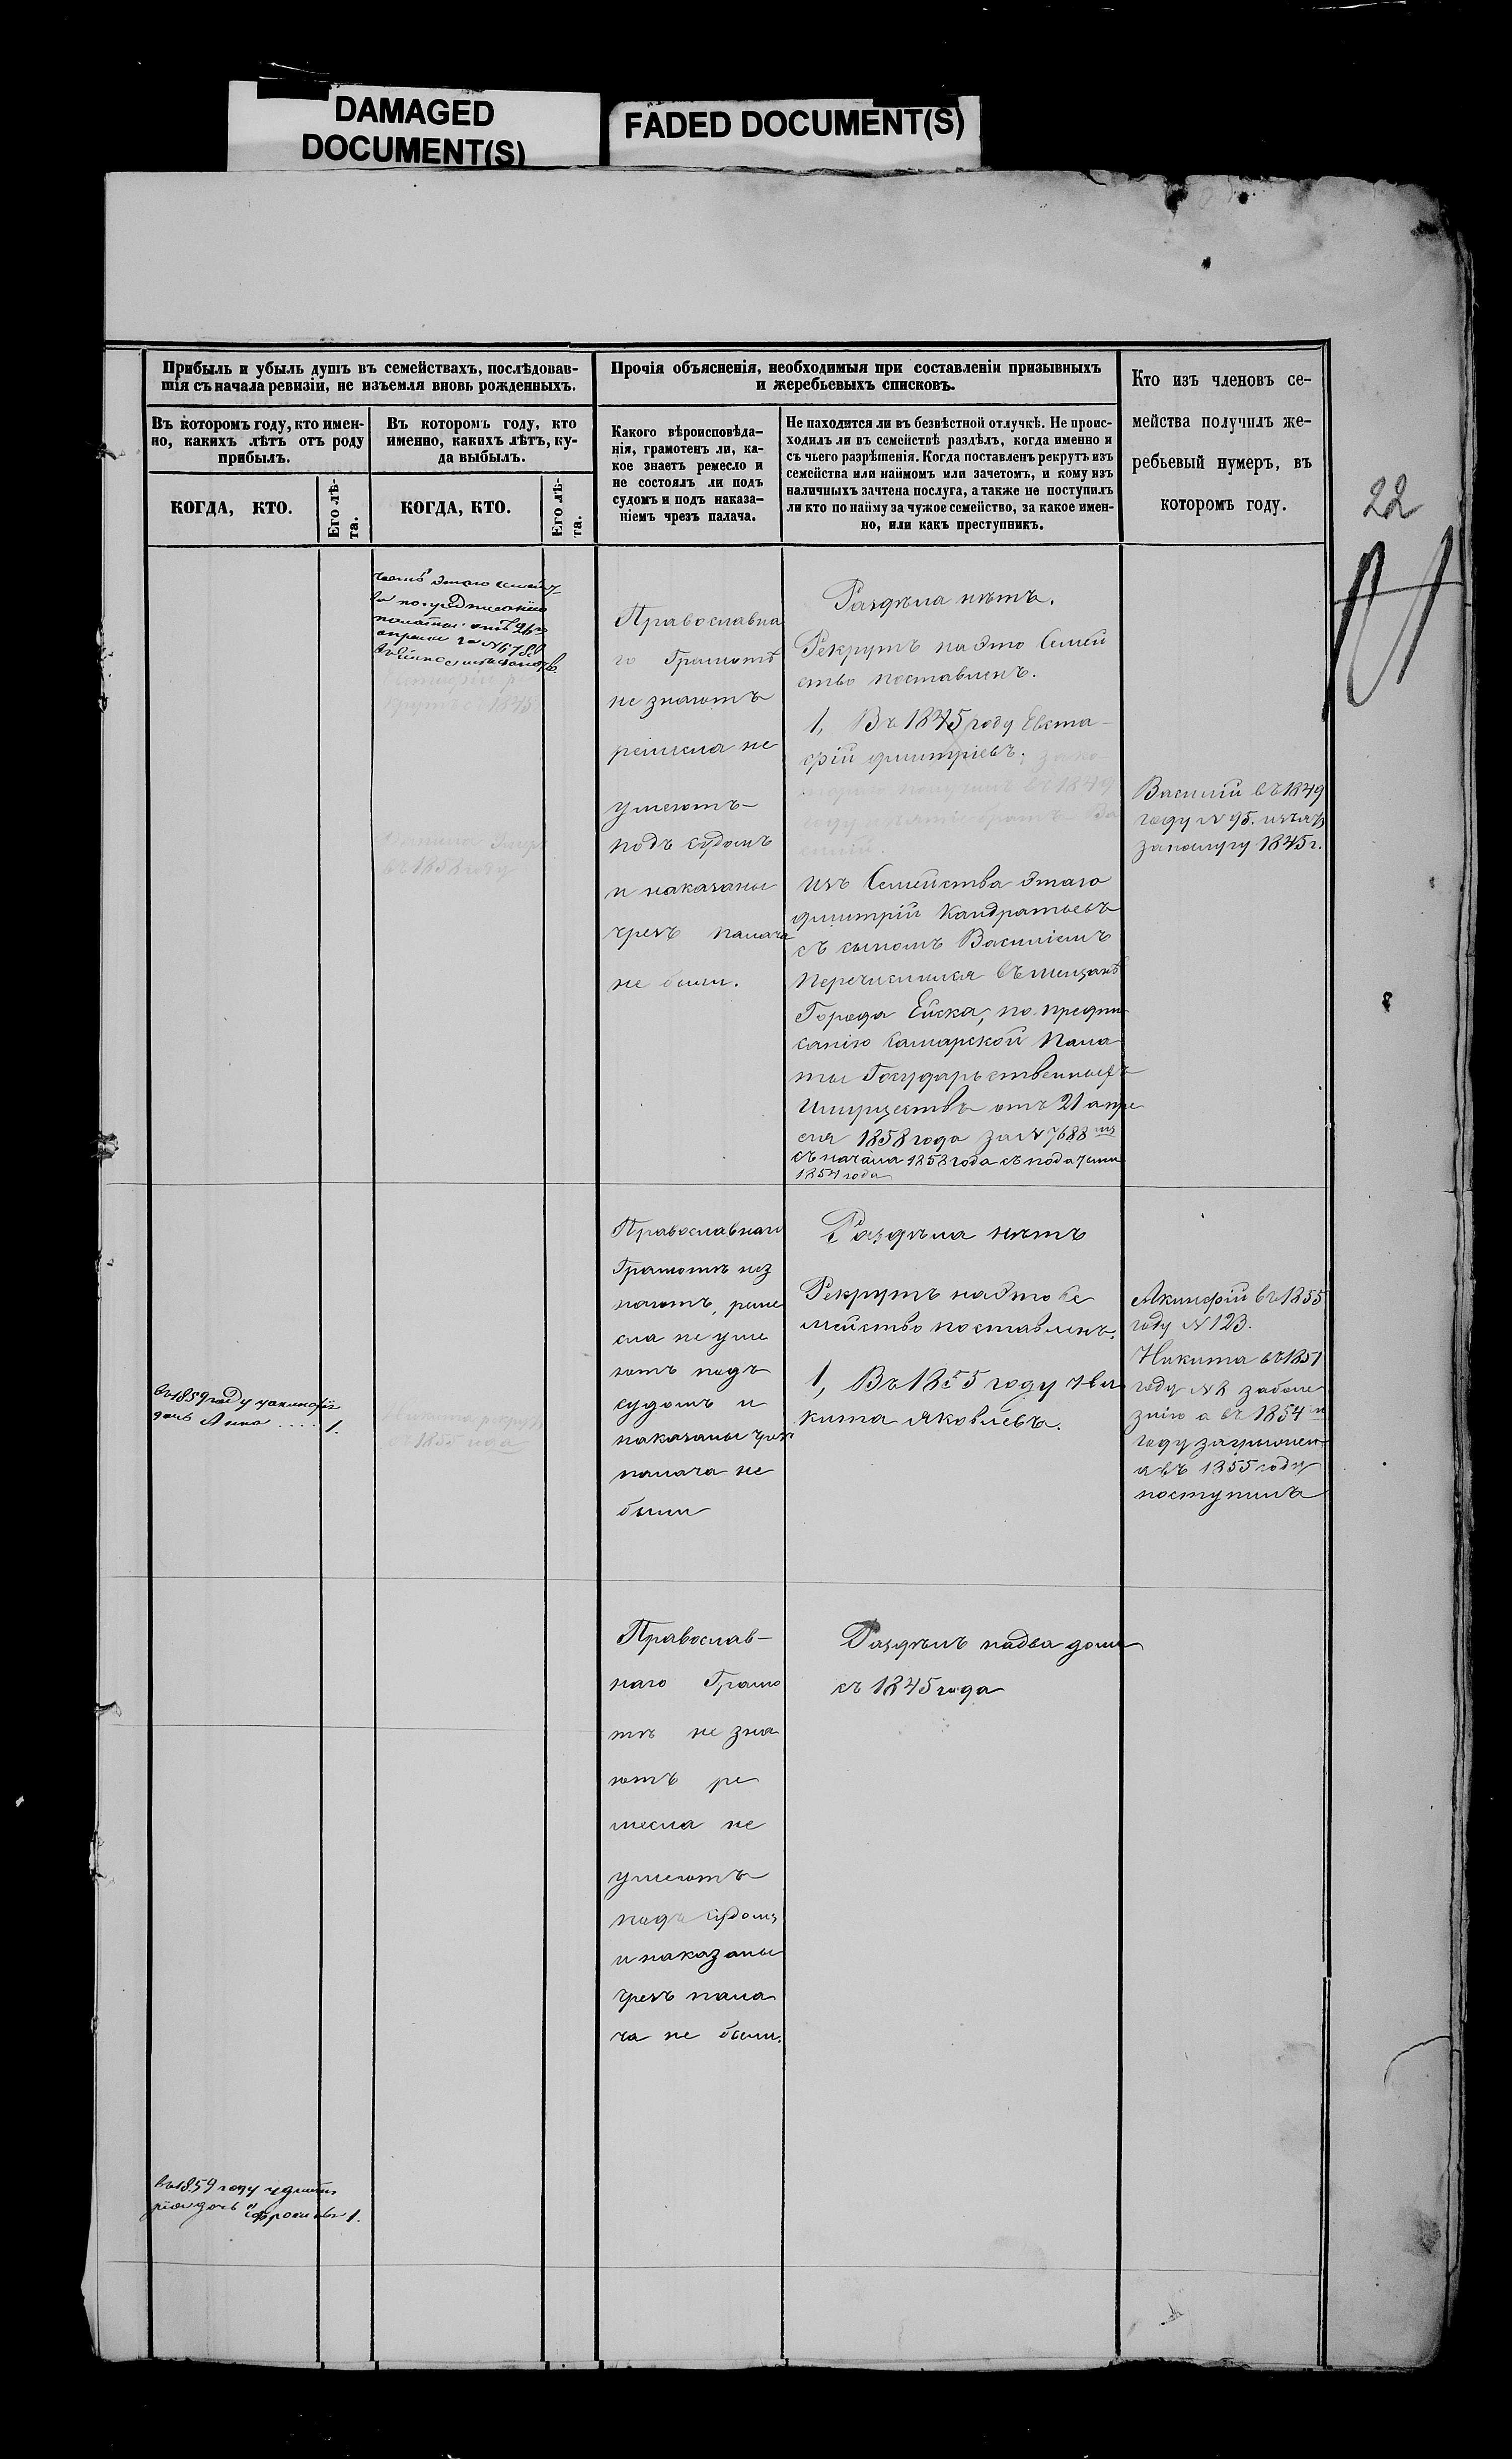 DAMAGED
DOCUMENT(S)
FADED DOCUMENT(S)
22
Прибыль и убыль душъ въ семействахъ, послѣдовав-
шія съ начала ревизіи, не изъемля вновь рожденныхъ.
Въ которомъ году, кто имен-
но, какихъ лѣтъ отъ роду
прибылъ.
Въ которомъ году, кто
именно, какихъ лѣтъ, ку-
да выбылъ.
КОГДА, КТО.
Его лѣ-
та.
КОГДА, КТО.
Его лѣ-
та.
Прочія объясненія, необходимыя при составленіи призывныхъ
и жеребьевыхъ списковъ.
Какого вѣроисповѣда-
нія, грамотенъ ли, ка-
кое знаетъ ремесло и
не состоялъ ли подъ
судомъ и подъ наказа-
ніемъ чрезъ палача.
Не находится ли въ безвѣстной отлучкѣ. Не проис-
ходилъ ли въ семействѣ раздѣлъ, когда именно и
съ чьего разрѣшенія. Когда поставленъ рекрутъ изъ
семейства или наймомъ или зачетомъ, и кому изъ
наличныхъ зачтена послуга, а также не поступилъ
ли кто по найму за чужое семейство, за какое имен-
но, или какъ преступникъ.
Кто изъ членовъ се-
мейства получилъ же-
ребьевый нумеръ, въ
которомъ году.
рекрутъ съ 1845
въ 1858 году
Православна
го Грамотѣ
не знаютъ
ремесла не
умеютъ
подъ судомъ
и наказаны
чрезъ палача
не были.
Раздѣла нѣтъ.
Рекрутъ на Это Семей
ство поставленъ.
1, Въ 1845 году Евста-
фій Дмитріевъ.
въ 1849
году братъ Ва
силій.
изъ Семейства Этаго
Дмитрій Кандратьевъ
съ сыномъ Василіемъ
перечислился въ мещанѣ
Города Ейска, по предпи
санію Самарской Пала
ты Государственныхъ
Имуществъ отъ 21 апре
ля 1858 года за № 7688
съ начала 1858 года съ податьми
1854 года
Василій въ 1849
году № 95.
за послугу 1845 г.
Въ 1859 году у Акинфія
дочь Анна .... 1.
Никита рекрутъ
съ 1855 года
Православнаго
Грамотѣ нез
наютъ, реме
сла не уме
ютъ подъ
судомъ и
наказаны чрезъ
палача не
были
Раздѣла нѣтъ
Рекрутъ на Это Се
мейство поставленъ.
1, Въ 1855 году Ни
кита Яковлевъ.
Акинфій въ 1855
году № 123.
Никита въ 1851
году № 2 заболе
знію а въ 1854 м
году
а въ 1855 году
поступилъ
Православ-
наго Грамо
тѣ не зна
ютъ ре
месла не
умеютъ
подъ судомъ
и наказаны
чрезъ пала
ча не были.
Раздѣлъ на два дома
съ 1845 года
въ 1859 году у Дмит
рія дочь Ефросинья 1.